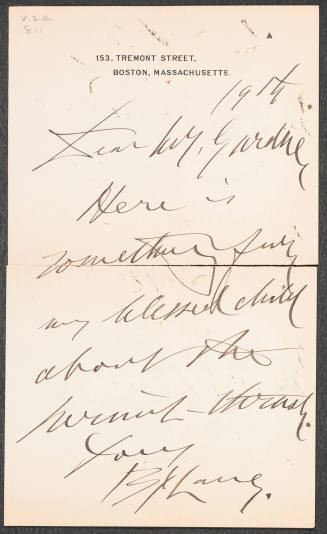 153, TREMONT STREET,
BOSTON, MASSACHUSETTS.
19th.
Dear Mrs. Gardner
Here is
something from
my blessed child
about the
hermit-thrush.
Yours
B J Lang.